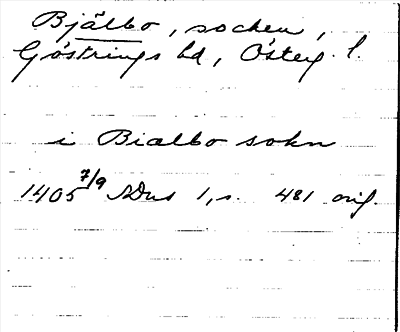 Bjälbo, socken,
Göstrings hd, Österg. l.
i Bialbo sokn
1405 7/9 SDns 1, s. 481 orig.